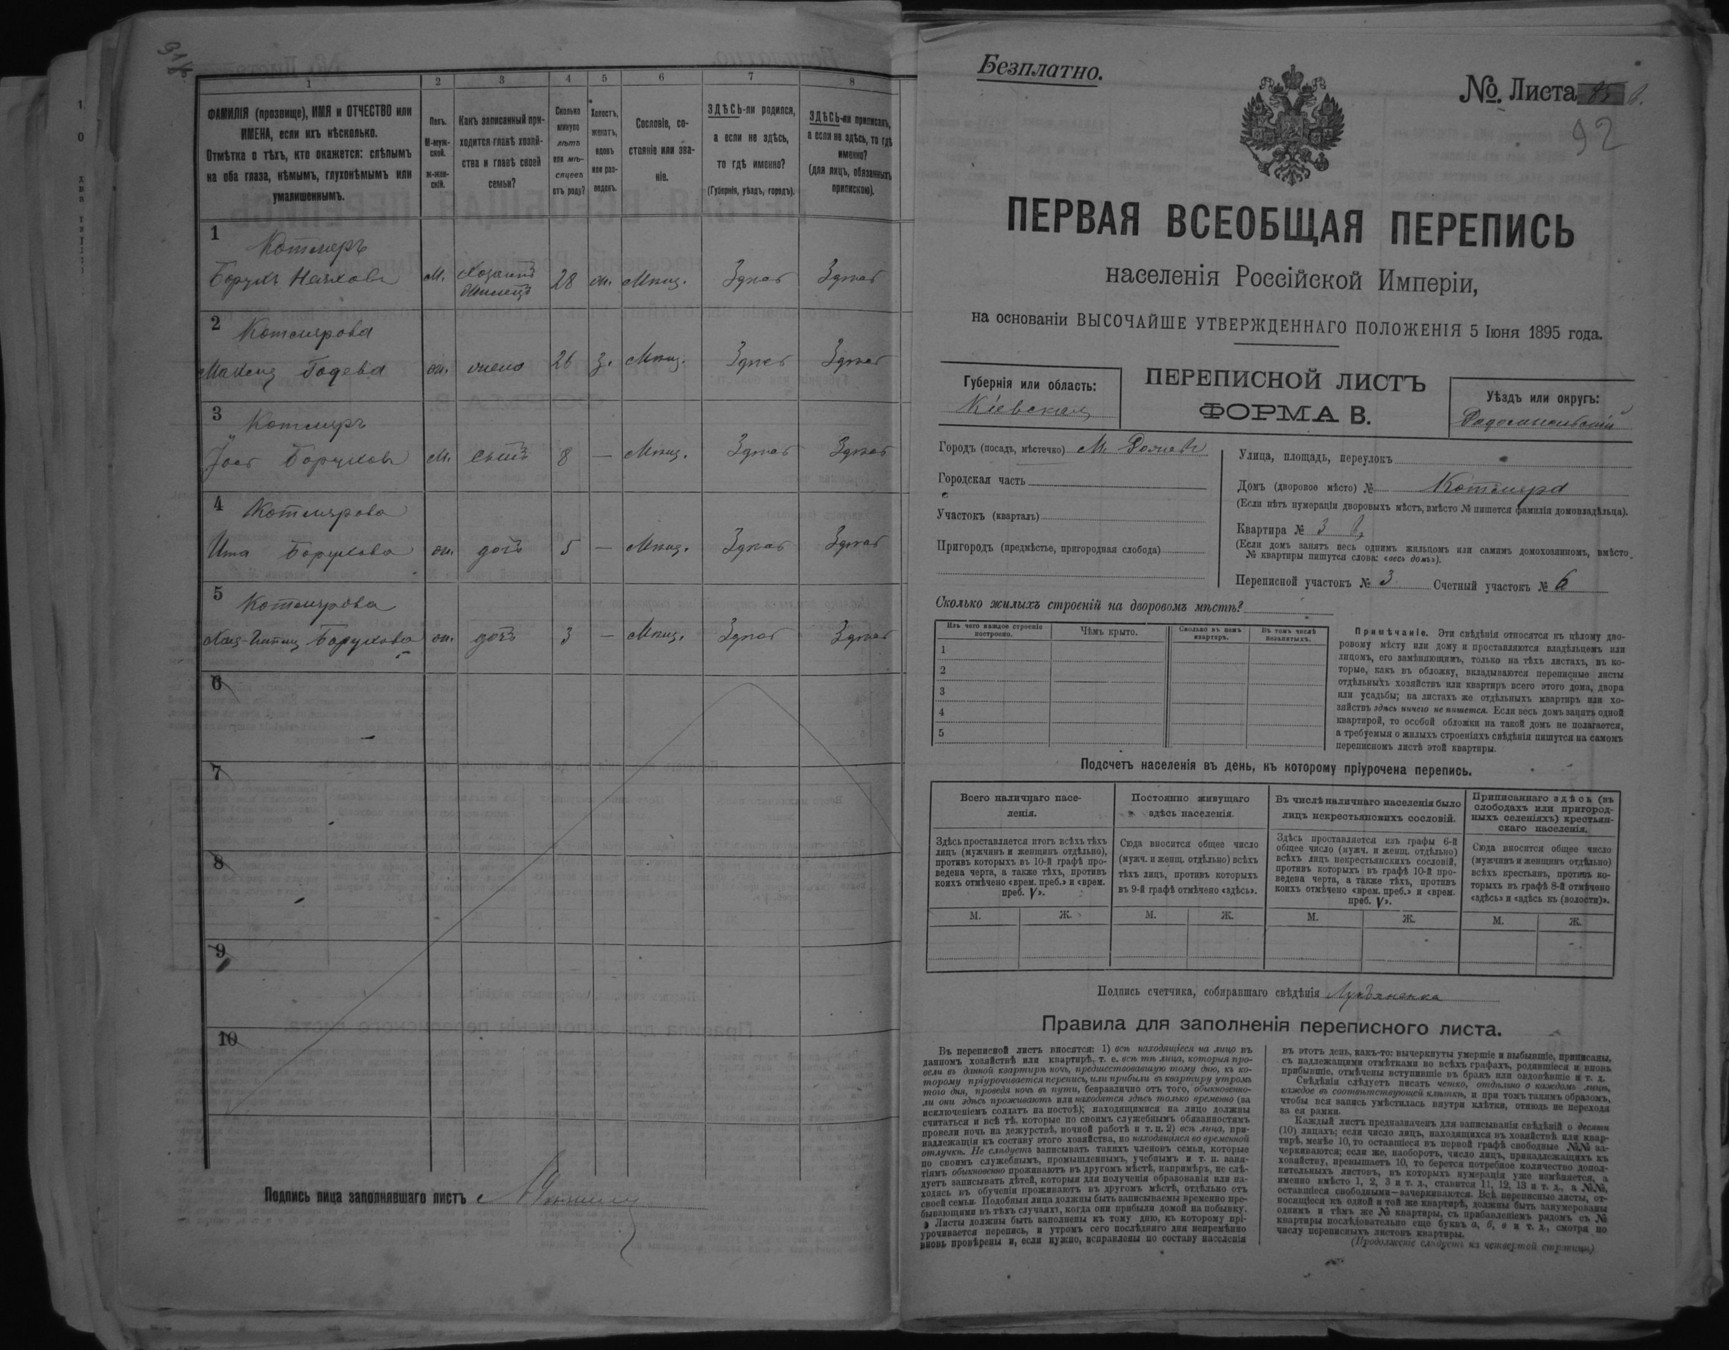 1
2
3
4
5
6
7
8
ФАМИЛІЯ (прозвище), ИМЯ и ОТЧЕСТВО или
ИМЕНА, если ихъ нѣсколько.
Отмѣтка о тѣхъ, кто окажется: слѣпымъ
на оба глаза, нѣмымъ, глухонѣмымъ или
умалишеннымъ.
Полъ.
М-муж-
ской.
ж-жен-
скій.
Какъ записанный при-
ходится главѣ хозяй-
ства и главѣ своей
семьи?
Сколько
минуло
лѣтъ
или мѣ-
сяцевъ
отъ роду?
Холостъ,
женатъ,
вдовъ
или раз-
веденъ.
Сословіе, со-
стояніе или зва-
ніе.
ЗДѢСЬ-ли родился,
а если не здѣсь,
то гдѣ именно?
(Губернія, уѣздъ, городъ).
ЗДѢСЬ-ли приписанъ,
а если не здѣсь, то гдѣ
именно?
(для лицъ, обязанныхъ
припискою).
1
Котляръ
Борухъ
м. Хозяинъ 28 Мѣщ. Здѣсь Здѣсь
2
Котлярова
жена 26 з. Мѣщ. Здѣсь Здѣсь
3
Котляръ
Борухов
м. сынъ 8 — Мѣщ. Здѣсь Здѣсь
4
Котлярова
Ита Борухова
дочь 5 — Мѣщ. Здѣсь Здѣсь
5
Котлярова
Борухова
дочь 3 — Мѣщ. Здѣсь Здѣсь
6
7
8
9
10
Подпись лица заполнявшаго листъ
Безплатно.
№ Листа
92
ПЕРВАЯ ВСЕОБЩАЯ ПЕРЕПИСЬ
населенія Россійской Имперіи,
на основаніи ВЫСОЧАЙШЕ УТВЕРЖДЕННАГО ПОЛОЖЕНІЯ 5 Іюня 1895 года.
Губернія или область:
Кіевская
ПЕРЕПИСНОЙ ЛИСТЪ
ФОРМА В.
Уѣздъ или округъ:
Радомысльскій
Городъ (посадъ, мѣстечко)
Городская часть
Участокъ (кварталъ)
Пригородъ (предмѣстье, пригородная слобода)
Улица, площадь, переулокъ
Домъ (дворовое мѣсто) № Котляра
(Если нѣтъ нумераціи дворовыхъ мѣстъ, вмѣсто № пишется фамилія домовладѣльца).
Квартира № 3
(Если домъ занятъ весь однимъ жильцомъ или самимъ домохозяиномъ, вмѣсто
№ квартиры пишутся слова: «весь домъ»).
Переписной участокъ № 3 Счетный участокъ № 6
Сколько жилыхъ строеній на дворовомъ мѣстѣ?
Изъ чего каждое строеніе
построено.
Чѣмъ крыто.
Сколько въ немъ
квартиръ.
Въ томъ числѣ
незанятыхъ.
1
2
3
4
5
Примѣчаніе. Эти свѣдѣнія относятся къ цѣлому дво-
ровому мѣсту или дому и проставляются владѣльцемъ или
лицомъ, его замѣняющимъ, только на тѣхъ листахъ, въ ко-
торые, какъ въ обложку, вкладываются переписные листы
отдѣльныхъ хозяйствъ или квартиръ всего этого дома, двора
или усадьбы; на листахъ же отдѣльныхъ квартиръ или хо-
зяйствъ здѣсь ничего не пишется. Если весь домъ занятъ одной
квартирой, то особой обложки на такой домъ не полагается,
а требуемыя о жилыхъ строеніяхъ свѣдѣнія пишутся на самомъ
переписномъ листѣ этой квартиры.
Подсчетъ населенія въ день, къ которому пріурочена перепись.
Всего наличнаго насе-
ленія.
Здѣсь проставляется итогъ всѣхъ тѣхъ
лицъ (мужчинъ и женщинъ отдѣльно),
противъ которыхъ въ 10-й графѣ про-
ведена черта, а также тѣхъ, противъ
коихъ отмѣчено «врем. преб.» и «врем.
преб. V».
Постоянно живущаго
здѣсь населенія.
Сюда вносится общее число
(мужч. и женщ. отдѣльно) всѣхъ
тѣхъ лицъ, противъ которыхъ
въ 9-й графѣ отмѣчено «здѣсь».
Въ числѣ наличнаго населенія было
лицъ некрестьянскихъ сословій.
Здѣсь проставляется изъ графы 6-й
общее число (мужч. и женщ. отдѣльно)
всѣхъ лицъ некрестьянскихъ сословій,
противъ которыхъ въ графѣ 10-й про-
ведена черта, а также тѣхъ, противъ
коихъ отмѣчено «врем. преб.» и «врем.
преб. V».
Приписаннаго здѣсь (въ
слободахъ или пригород-
ныхъ селеніяхъ) крестьян-
скаго населенія.
Сюда вносится общее число
(мужчинъ и женщинъ отдѣльно)
всѣхъ крестьянъ, противъ ко-
торыхъ въ графѣ 8-й отмѣчено
«здѣсь» и «здѣсь къ (волости)».
М. Ж. М. Ж. М. Ж. М. Ж.
Подпись счетчика, собиравшаго свѣдѣнія Лукьяненко
Правила для заполненія переписного листа.
Въ переписной листъ вносятся: 1) всѣ находящіеся на лицо въ
данномъ хозяйствѣ или квартирѣ, т. е. всѣ тѣ лица, которыя про-
вели въ данной квартирѣ ночь, предшествовавшую тому дню, къ ко-
торому пріурочивается перепись, или прибыли въ квартиру утромъ
того дня, проведя ночь въ пути, безразлично отъ того, обыкновенно-
ли они здѣсь проживаютъ или находятся здѣсь только временно (за
исключеніемъ солдатъ на постоѣ); находящимися на лицо должны
считаться и всѣ тѣ, которые по своимъ служебнымъ обязанностямъ
провели ночь на дежурствѣ, ночной работѣ и т. п. 2) всѣ лица, при-
надлежащія къ составу этого хозяйства, но находящіяся во временной
отлучкѣ. Не слѣдуетъ записывать такихъ членовъ семьи, которые
по своимъ служебнымъ, промышленнымъ, учебнымъ и т. п. заня-
тіямъ обыкновенно проживаютъ въ другомъ мѣстѣ, напримѣръ, не слѣ-
дуетъ записывать дѣтей, которыя для полученія образованія или на-
ходясь въ обученіи проживаютъ въ другомъ мѣстѣ, отдѣльно отъ
своей семьи. Подобныя лица должны быть записываемы временно пре-
бывающими въ тѣхъ случаяхъ, когда они прибыли домой на побывку.
Листы должны быть заполнены къ тому дню, къ которому прі-
урочивается перепись, и утромъ сего послѣдняго дня непремѣнно
вновь провѣрены и, если нужно, исправлены по составу населенія
въ этотъ день, какъ-то: вычеркнуты умершіе и выбывшіе, приписаны,
съ надлежащими отмѣтками во всѣхъ графахъ, родившіеся и вновь
прибывшіе, отмѣчены вступившіе въ бракъ или овдовѣвшіе и т. д.
Свѣдѣнія слѣдуетъ писать четко, отдѣльно о каждомъ лицѣ,
каждое въ соотвѣтствующей клѣткѣ, и при томъ такимъ образомъ,
чтобы вся запись умѣстилась внутри клѣтки, отнюдь не переходя
за ея рамки.
Каждый листъ предназначенъ для записыванія свѣдѣній о десяти
(10) лицахъ; если число лицъ, находящихся въ хозяйствѣ или квар-
тирѣ, менѣе 10, то оставшіеся въ первой графѣ свободные №№ за-
черкиваются; если же, наоборотъ, число лицъ, принадлежащихъ къ
хозяйству, превышаетъ 10, то берется потребное количество допол-
нительныхъ листовъ, въ которыхъ нумерація уже измѣняется, а
именно вмѣсто 1, 2, 3 и т. д., ставятся 11, 12, 13 и т. д., а №№,
оставшіеся свободными—зачеркиваются. Всѣ переписные листы, от-
носящіеся къ одной и той же квартирѣ, должны быть занумерованы
однимъ и тѣмъ же № квартиры, съ прибавленіемъ рядомъ съ №
квартиры послѣдовательно еще буквъ а, б, в и т. д., смотря по
числу переписныхъ листовъ квартиры.
(Продолженіе слѣдуетъ на четвертой страницѣ)